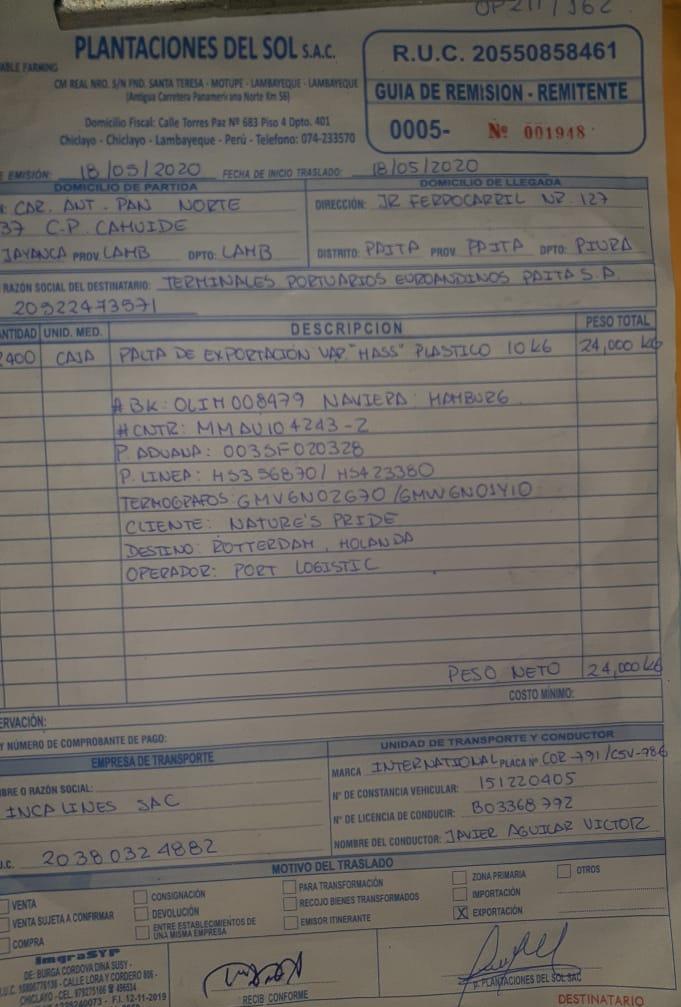 OP211/162
PLANTACIONES DEL SOL S.A.C.
ABLE FARMING
CM REAL NRO. S/N FND. SANTA TERESA - MOTUPE - LAMBAYEQUE - LAMBAYEQUE
(Antigua Carretera Panamericana Norte Km 56)
Domicilio Fiscal: Calle Torres Paz Nº 683 Piso 4 Dpto. 401
Chiclayo - Chiclayo - Lambayeque - Perú - Telefono: 074-233570
R.U.C. 20550858461
GUIA DE REMISION - REMITENTE
0005- Nº 001948
E EMISIÓN: 18/05/2020 FECHA DE INICIO TRASLADO: 18/05/2020
DOMICILIO DE PARTIDA DOMICILIO DE LLEGADA
CAR. ANT. PAN NORTE
37 C.P. CAHUIDE
JAYANCA PROV LAMB DPTO: LAMB
DIRECCIÓN: JR FERROCARRIL NR. 127
DISTRITO: PAITA PROV PAITA DPTO: PIURA
RAZÓN SOCIAL DEL DESTINATARIO: TERMINALES PORTUARIOS EUROANDINOS PAITA S.A.
20522473571
ANTIDAD UNID. MED. DESCRIPCION PESO TOTAL
2400 CAJA PALTA DE EXPORTACIÓN VAR. "HASS" PLASTICO 10 KG 24,000 KG
# BK: OLIM008479 NAVIERA: HAMBURG
# CNTR: MMAU104243-2
P. ADUANA: 003SF020328
P. LINEA: HS356870/ HS423380
TERMOGRAFOS: GMV6N02G70 /GMW6N01Y10
CLIENTE: NATURE'S PRIDE
DESTINO: ROTTERDAM, HOLANDA
OPERADOR: PORT LOGISTIC
PESO NETO 24,000 KG
COSTO MÍNIMO:
ERVACIÓN:
Y NÚMERO DE COMPROBANTE DE PAGO:
EMPRESA DE TRANSPORTE
BRE O RAZÓN SOCIAL:
INCA LINES SAC
U.C. 20380324882
UNIDAD DE TRANSPORTE Y CONDUCTOR
MARCA INTERNATIONAL PLACA Nº COR-791/CSV-786
Nº DE CONSTANCIA VEHICULAR: 151220405
Nº DE LICENCIA DE CONDUCIR: B03368792
NOMBRE DEL CONDUCTOR: JAVIER AGUILAR VICTOR
MOTIVO DEL TRASLADO
VENTA
VENTA SUJETA A CONFIRMAR
COMPRA
CONSIGNACIÓN
DEVOLUCIÓN
ENTRE ESTABLECIMIENTOS DE
UNA MISMA EMPRESA
PARA TRANSFORMACIÓN
RECOJO BIENES TRANSFORMADOS
EMISOR ITINERANTE
ZONA PRIMARIA
IMPORTACIÓN
X EXPORTACIÓN
OTROS
ImgraSYP
DE: BURGA CORDOVA DINA SUSY -
CALLE LORA Y CORDERO 806 -
F.I. 12-11-2019
RECIB CONFORME
P. PLANTACIONES DEL SOL SAC
DESTINATARIO